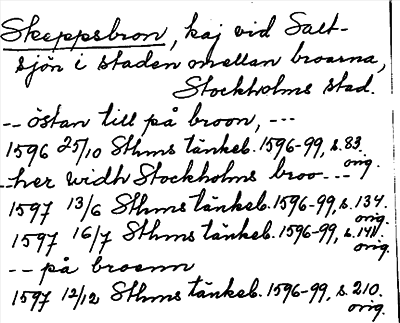 Skeppsbron, kaj vid Salt-
sjön i staden mellan broarna,
Stockholms stad.
-- östan till på broon, ---
1596 25/10 Sthms tänkeb. 1596-99, s. 83.
orig.
-- her widh Stockholms broo ---
1597 13/6 Sthms tänkeb. 1596-99, s. 134.
orig.
1597 16/7 Sthms tänkeb. 1596-99, s.
orig.
-- på broenn
1597 12/12 Sthms tänkeb. 1596-99, s. 210.
orig.